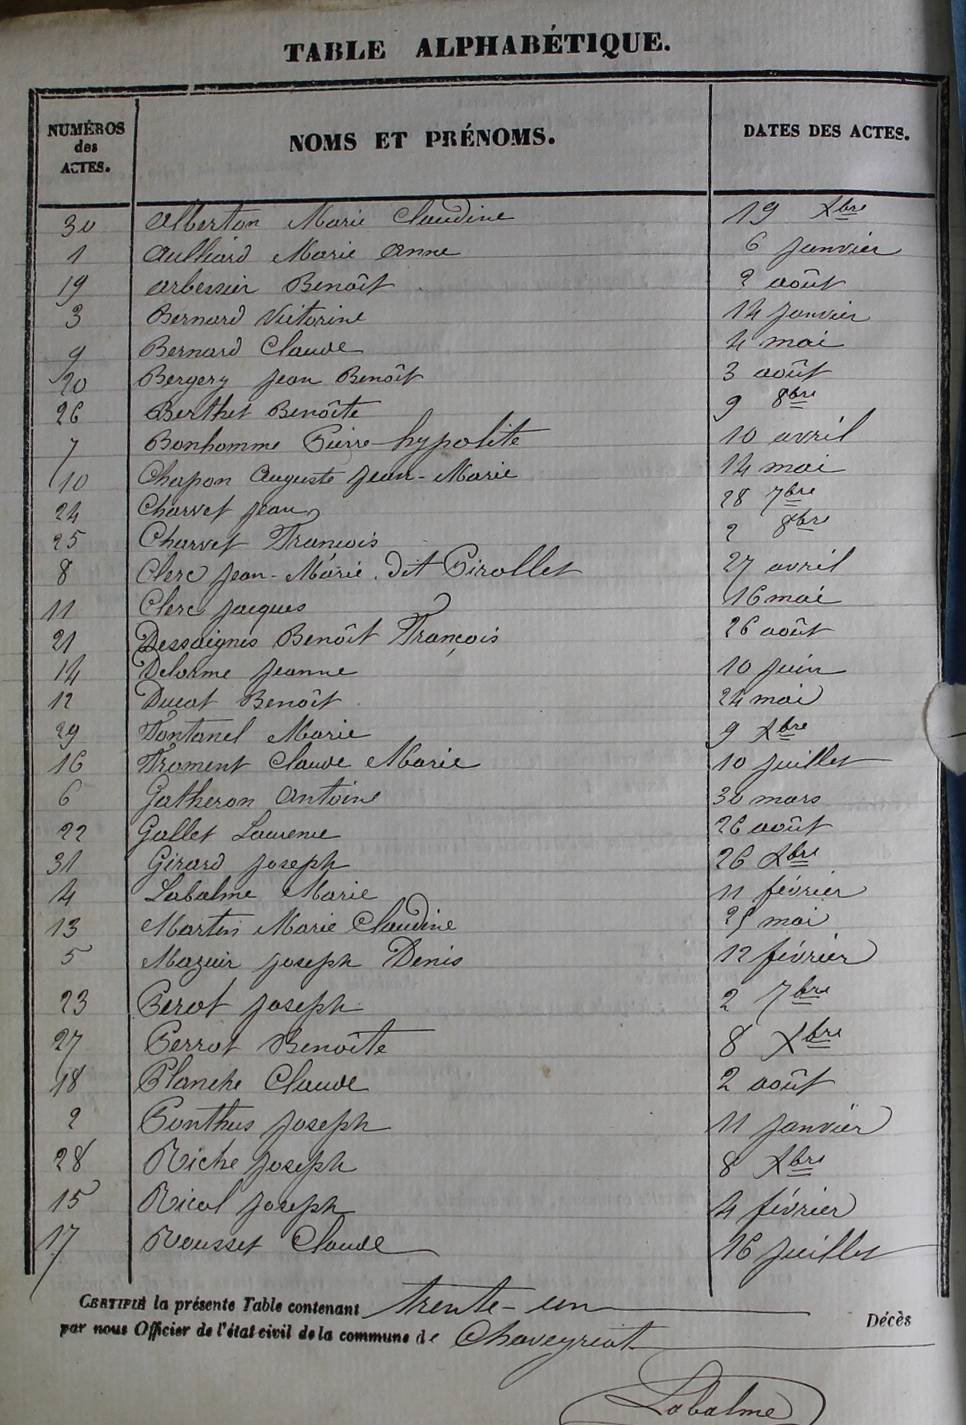 TABLE ALPHABÉTIQUE.
NUMÉROS des ACTES. NOMS ET PRÉNOMS. DATES DES ACTES.
30 Alberton Marie Claudine 19 Xbre
1 Aulliard Marie Anne 6 janvier
19 Arbessier Benoît 2 août
3 Bernard Victorine 14 janvier
9 Bernard Claude 4 mai
20 Bergery Jean Benoît 3 août
26 Berthet Benoîte 9 8bre
7 Bonhomme Pierre hypolite 10 avril
10 Chapon Auguste Jean-Marie 14 mai
24 Charvet Jean 28 7bre
25 Charvet François 2 8bre
8 Clerc Jean-Marie dit Pirollet 27 avril
11 Clerc Jacques 16 mai
21 Dessaignes Benoît François 26 août
14 Delorme Jeanne 10 juin
12 Ducot Benoît 24 mai
29 Fontanel Marie 9 Xbre
16 Froment Claude Marie 10 juillet
6 Gatheron Antoine 30 mars
22 Gallet Laurence 26 août
31 Girard Joseph 26 Xbre
4 Labalme Marie 11 février
13 Martin Marie Claudine 25 mai
5 Mazuir Joseph Denis 12 février
23 Perot Joseph 2 7bre
27 Perrot Benoîte 8 Xbre
18 Planche Claude 2 août
2 Ponthus Joseph 11 janvier
28 Riche Joseph 8 Xbre
15 Ricol Joseph 4 février
17 Rousset Claude 16 juillet
CERTIFIÉ la présente Table contenant trente-un Décès
par nous Officier de l'état civil de la commune de Chaveyriat
Labalme